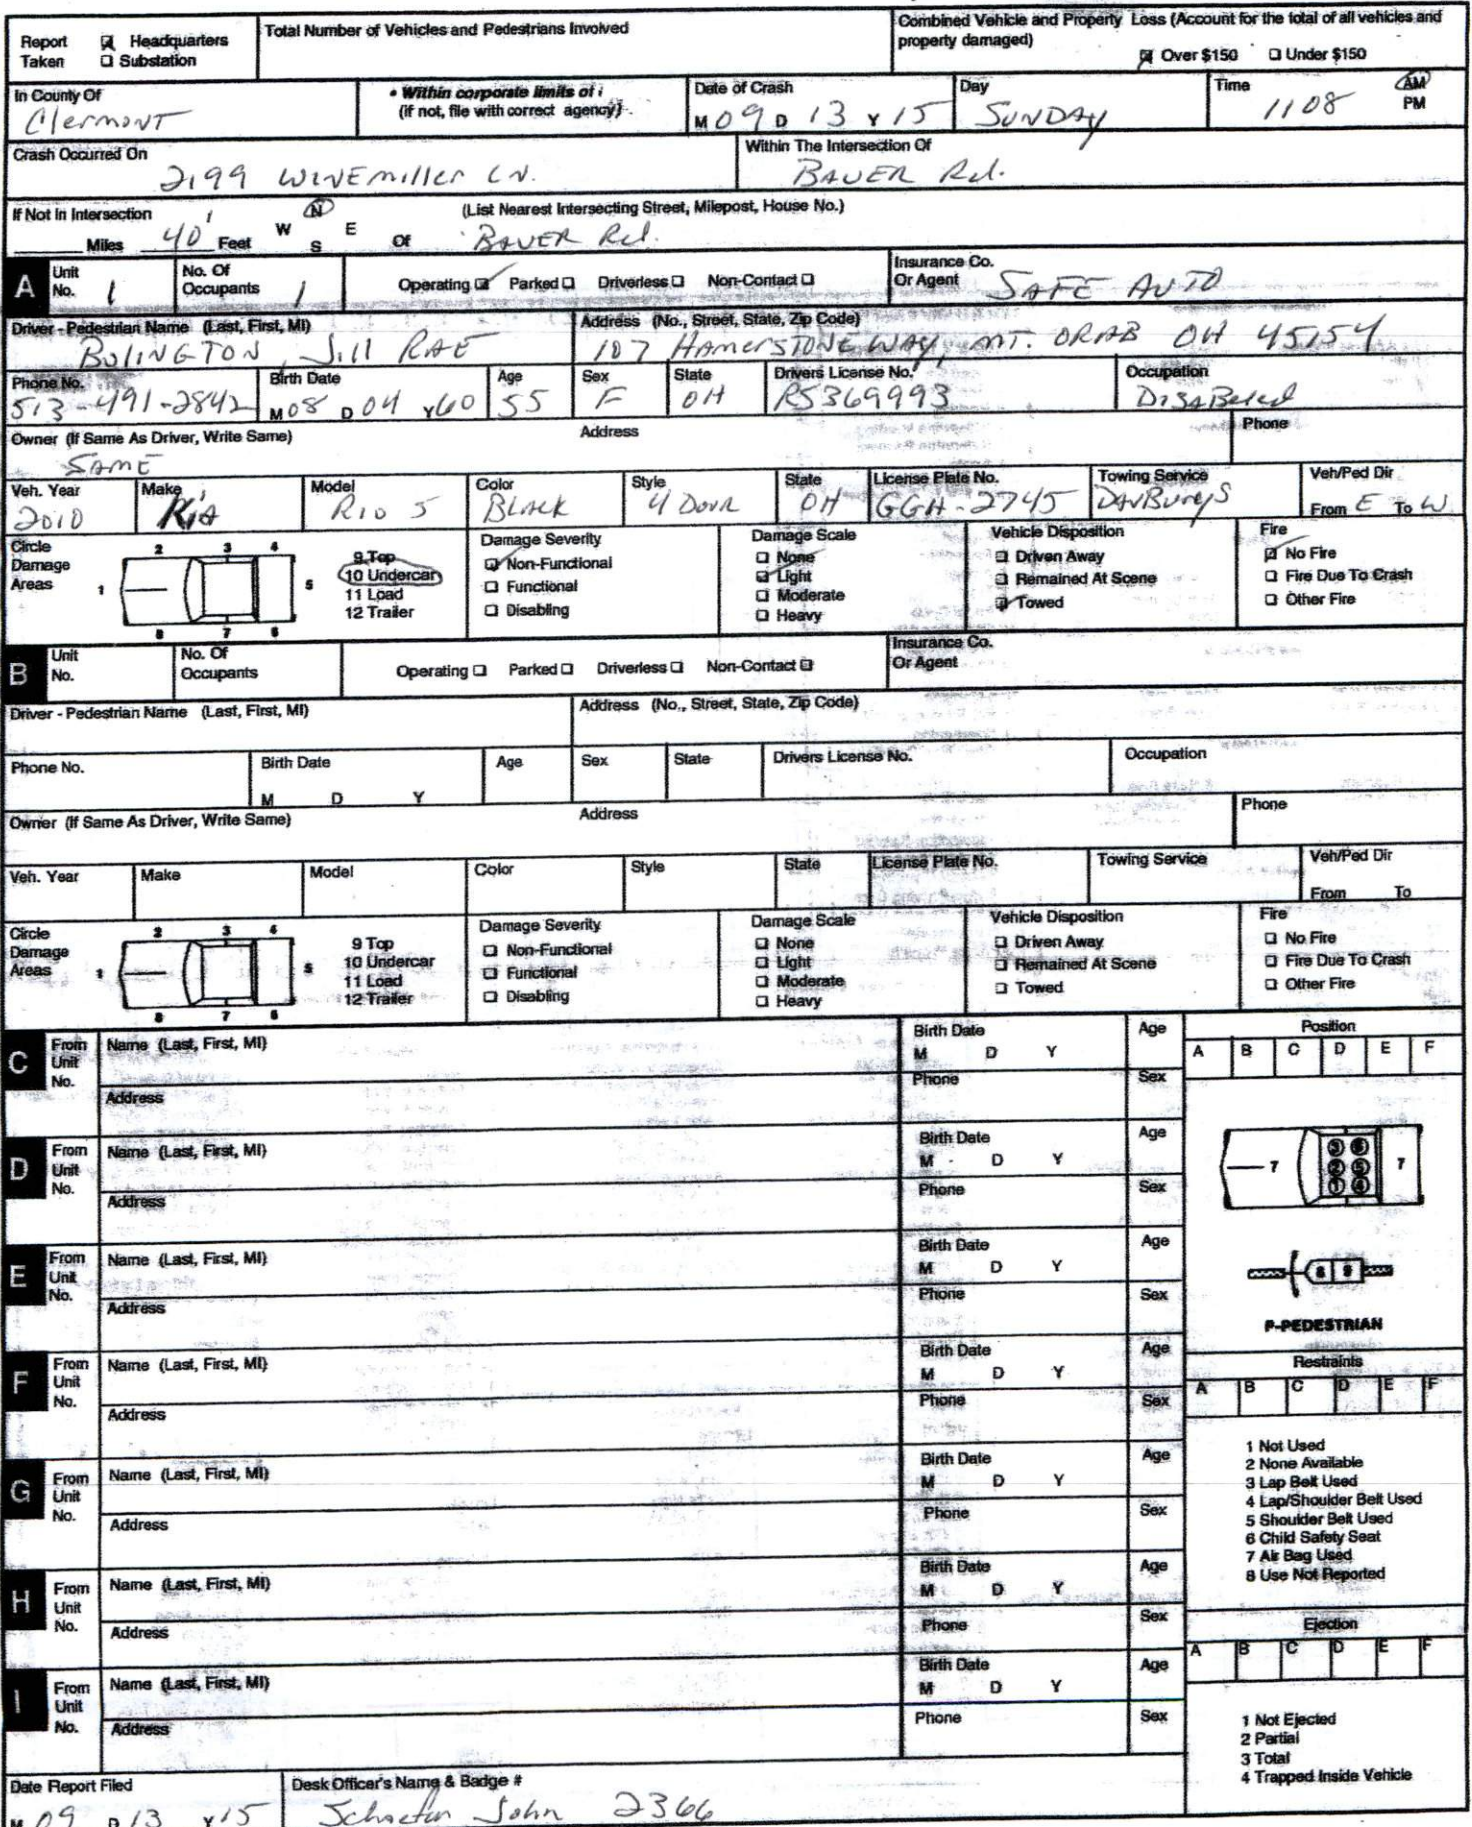 Report Taken ☑ Headquarters ☐ Substation
Total Number of Vehicles and Pedestrians Involved
Combined Vehicle and Property Loss (Account for the total of all vehicles and property damaged) ☑ Over $150 ☐ Under $150
In County Of Clermont
• Within corporate limits of: (if not, file with correct agency)
Date of Crash M 09 D 13 Y 15
Day SUNDAY
Time 1108 AM PM
Crash Occurred On 2199 WINEmiller LN.
Within The Intersection Of BAUER Rd.
If Not In Intersection ____ Miles 40' Feet W N S E Of (List Nearest Intersecting Street, Milepost, House No.) BAUER Rd.
A Unit No. 1 No. Of Occupants 1 Operating ☑ Parked ☐ Driverless ☐ Non-Contact ☐ Insurance Co. Or Agent SAFE AUTO
Driver - Pedestrian Name (Last, First, MI) BOLINGTON, Jill RAE
Address (No., Street, State, Zip Code) 107 HAMERSTONE WAY, MT. ORAB OH 45154
Phone No. 513-491-2842 Birth Date M 08 D 04 Y 60 Age 55 Sex F State OH Drivers License No. RS369993 Occupation DISABeled
Owner (If Same As Driver, Write Same) SAME Address Phone
Veh. Year 2010 Make Kia Model RIO 5 Color BLACK Style 4 DOOR State OH License Plate No. GGH-2745 Towing Service Veh/Ped Dir From E To W
Circle Damage Areas 1 2 3 4 5 6 7 8 9 Top 10 Undercar 11 Load 12 Trailer
Damage Severity ☑ Non-Functional ☐ Functional ☐ Disabling
Damage Scale ☐ None ☑ Light ☐ Moderate ☐ Heavy
Vehicle Disposition ☐ Driven Away ☐ Remained At Scene ☑ Towed
Fire ☑ No Fire ☐ Fire Due To Crash ☐ Other Fire
B Unit No. No. Of Occupants Operating ☐ Parked ☐ Driverless ☐ Non-Contact ☐ Insurance Co. Or Agent
Driver - Pedestrian Name (Last, First, MI) Address (No., Street, State, Zip Code)
Phone No. Birth Date M D Y Age Sex State Drivers License No. Occupation
Owner (If Same As Driver, Write Same) Address Phone
Veh. Year Make Model Color Style State License Plate No. Towing Service Veh/Ped Dir From To
Circle Damage Areas 1 2 3 4 5 6 7 8 9 Top 10 Undercar 11 Load 12 Trailer
Damage Severity ☐ Non-Functional ☐ Functional ☐ Disabling
Damage Scale ☐ None ☐ Light ☐ Moderate ☐ Heavy
Vehicle Disposition ☐ Driven Away ☐ Remained At Scene ☐ Towed
Fire ☐ No Fire ☐ Fire Due To Crash ☐ Other Fire
C From Unit No. Name (Last, First, MI) Birth Date M D Y Age
Address Phone Sex
D From Unit No. Name (Last, First, MI) Birth Date M D Y Age
Address Phone Sex
E From Unit No. Name (Last, First, MI) Birth Date M D Y Age
Address Phone Sex
F From Unit No. Name (Last, First, MI) Birth Date M D Y Age
Address Phone Sex
G From Unit No. Name (Last, First, MI) Birth Date M D Y Age
Address Phone Sex
H From Unit No. Name (Last, First, MI) Birth Date M D Y Age
Address Phone Sex
I From Unit No. Name (Last, First, MI) Birth Date M D Y Age
Address Phone Sex
Position
A B C D E F
7 3 6 2 5 1 4 7
8 9
P-PEDESTRIAN
Restraints
A B C D E F
1 Not Used
2 None Available
3 Lap Belt Used
4 Lap/Shoulder Belt Used
5 Shoulder Belt Used
6 Child Safety Seat
7 Air Bag Used
8 Use Not Reported
Ejection
A B C D E F
1 Not Ejected
2 Partial
3 Total
4 Trapped Inside Vehicle
Date Report Filed M 09 D 13 Y 15
Desk Officer's Name & Badge # John 2366